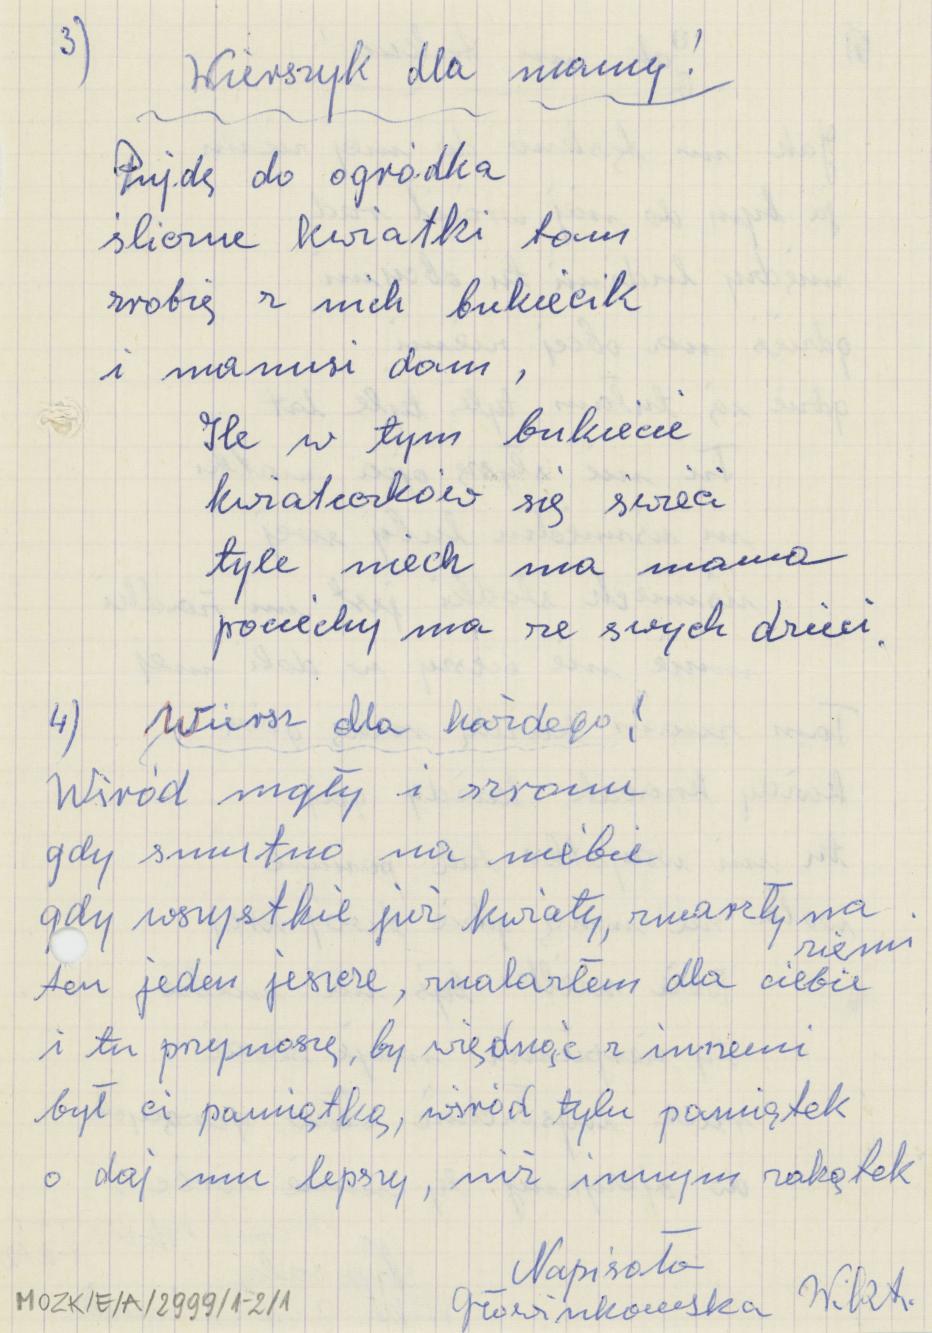 3)
Wierszyk dla mamy!
Pujdę do ogródka
śliczne kwiatki tam
zrobię z nich bukiecik
i mamusi dam,
Ile w tym bukiecie
kwiatuszków się świeci
tyle niech ma mama
pociechy ma ze swych dzieci.
4) Wiersz dla każdego!
Wśród mgły i szronu
gdy smutno na niebie
gdy wszystkie już kwiaty, zmarzły na
ziemi
ten jeden jeszcze, znalazłem dla ciebie
i tu przynoszę, by więdnąć z inszemi
był ci pamiątką, wśród tylu pamiątek
o daj mu lepszy, niż innym zakątek
Napisała
Głowinkowska
MOZK/E/A/2999/1-2/1